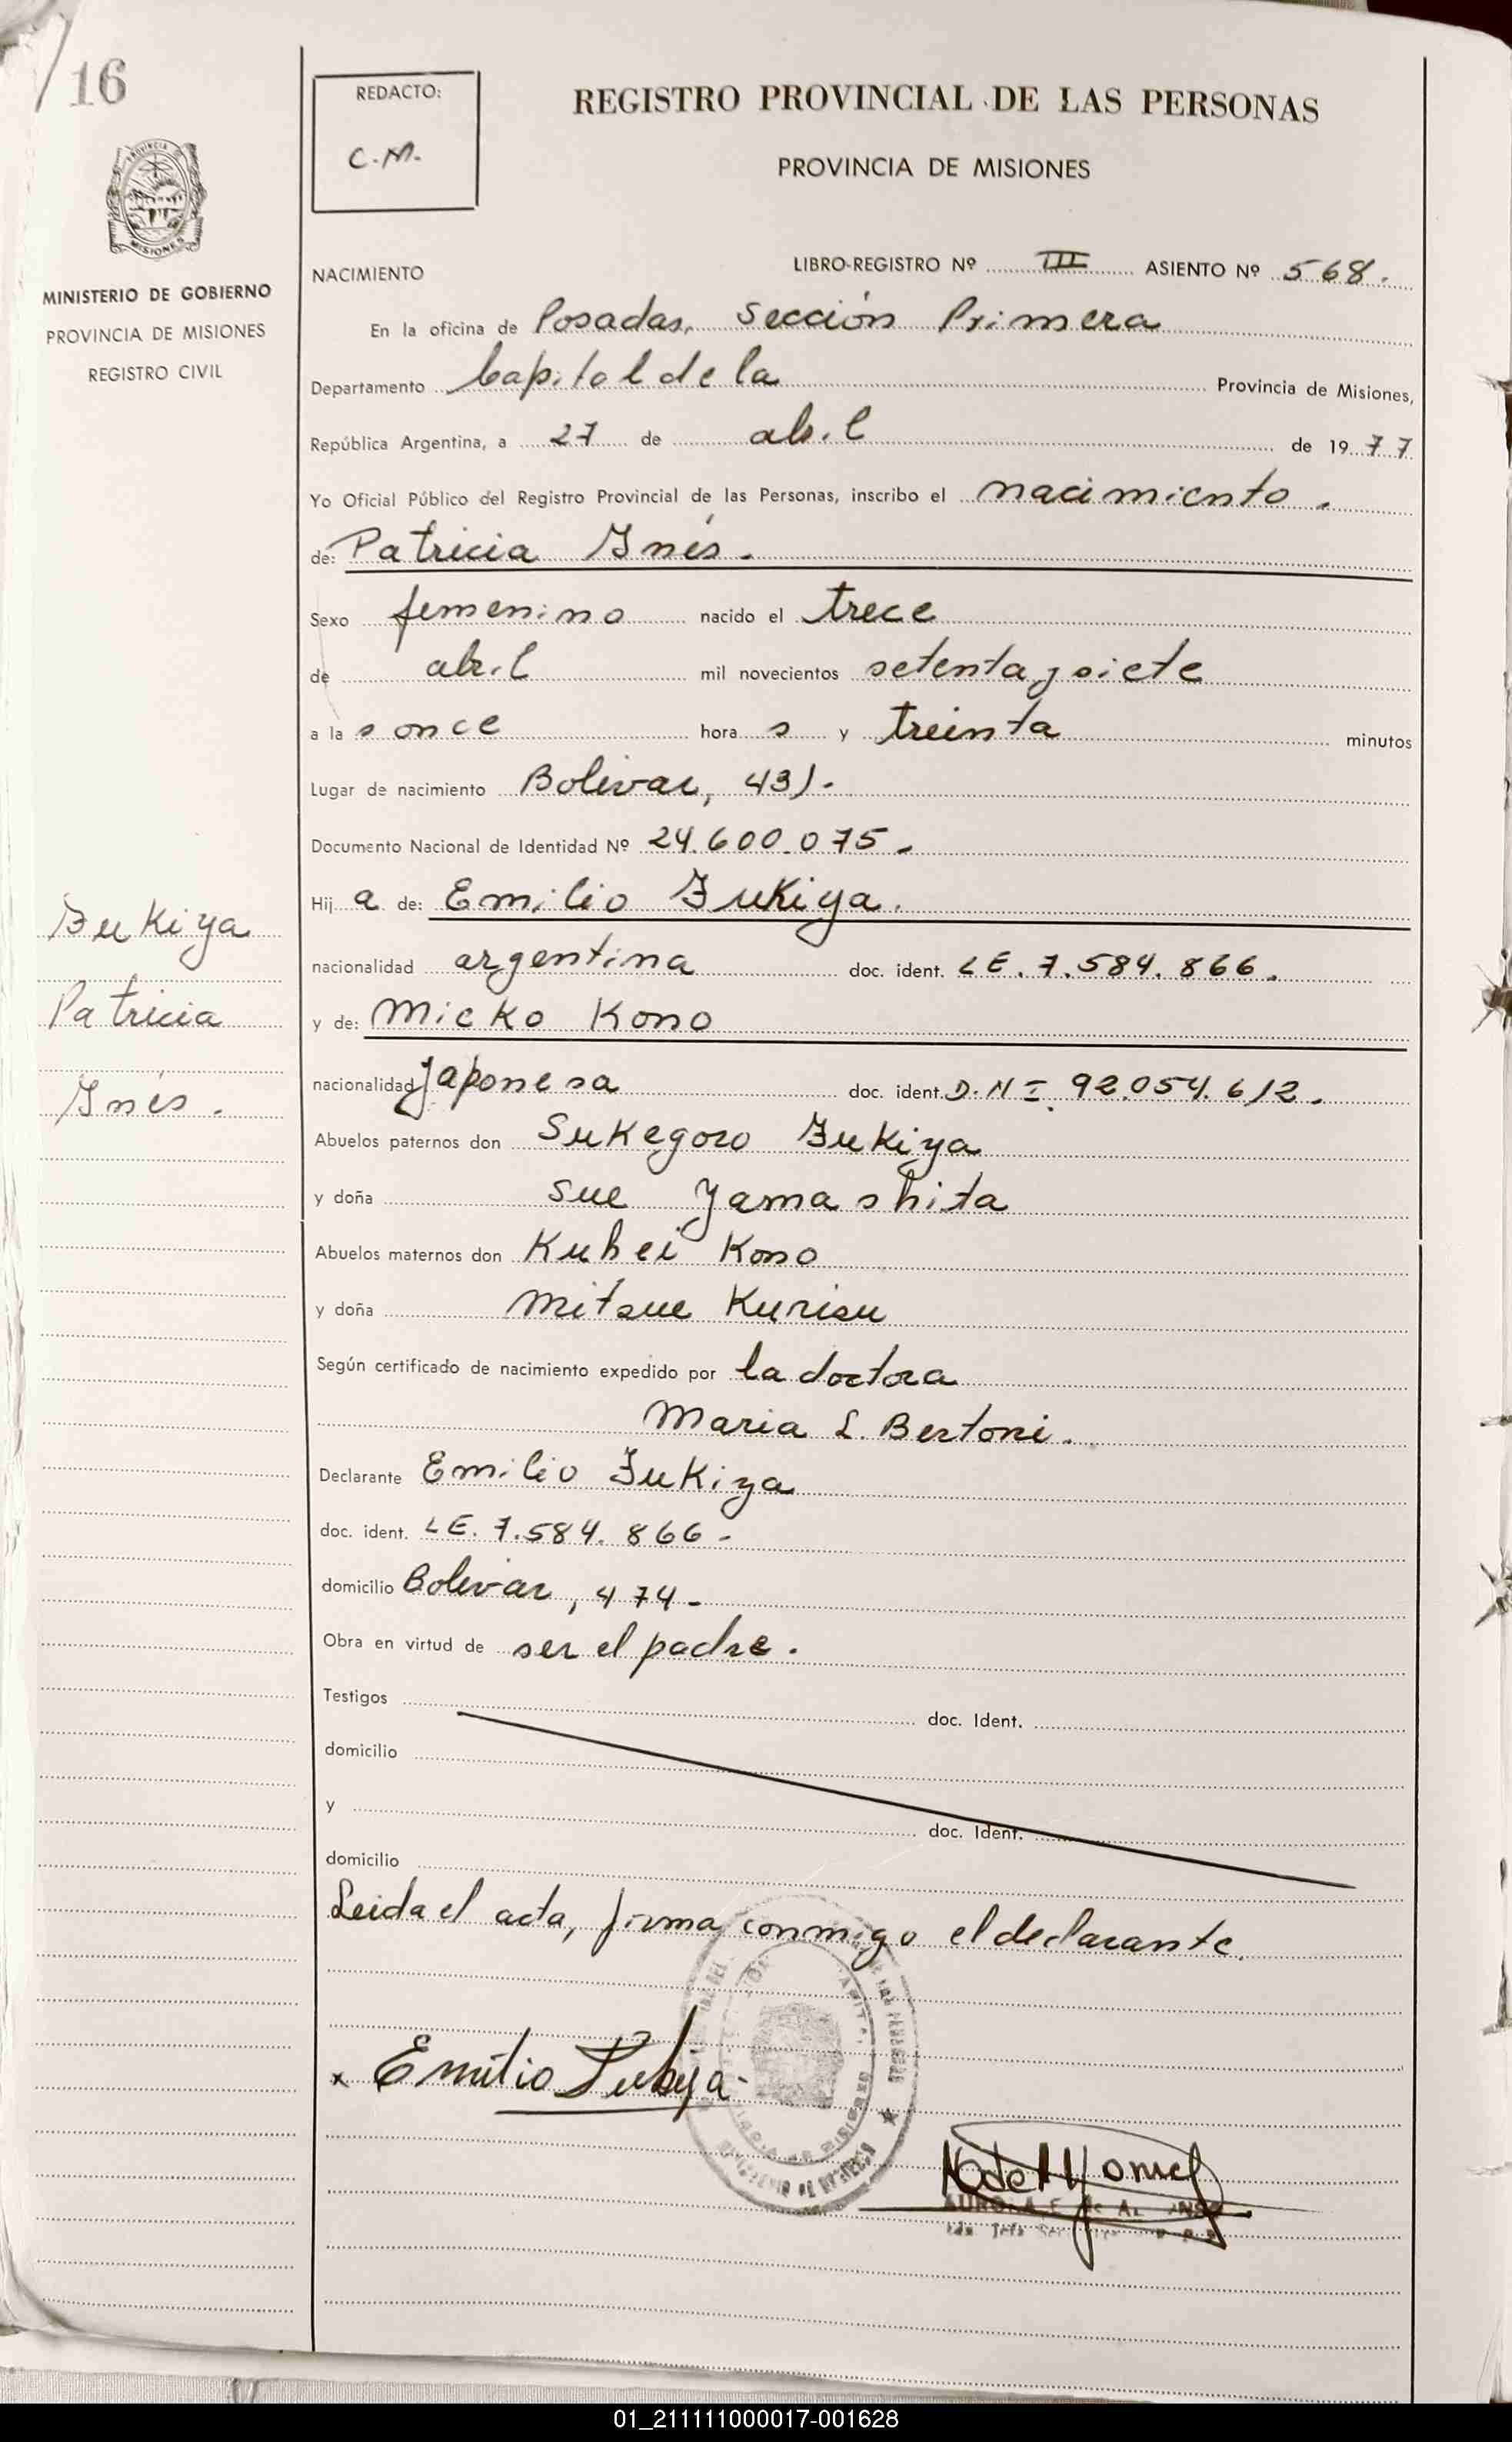 16
REDACTO:
C.M.
REGISTRO PROVINCIAL DE LAS PERSONAS
PROVINCIA DE MISIONES
MINISTERIO DE GOBIERNO
PROVINCIA DE MISIONES
REGISTRO CIVIL
NACIMIENTO
LIBRO-REGISTRO Nº III ASIENTO Nº 568.
En la oficina de Posadas, Sección Primera
Departamento Capital de la Provincia de Misiones,
República Argentina, a 27 de abril de 1977
Yo Oficial Público del Registro Provincial de las Personas, inscribo el nacimiento.
de: Patricia Inés.
Sexo femenino nacido el trece
de abril mil novecientos setenta y siete
a las once horas y treinta minutos
Lugar de nacimiento Bolivar, 431.
Documento Nacional de Identidad Nº 24.600.075.
Hija de: Emilio Fukiya.
nacionalidad argentina doc. ident. LE. 7.584.866.
y de: Micko Kono
nacionalidad Japonesa doc. ident. D.N I. 92.054.612.
Abuelos paternos don Sukegoro Fukiya
y doña Sue Yamashita
Abuelos maternos don Kuhei Kono
y doña Mitsue Kurisu
Según certificado de nacimiento expedido por la doctora
Maria L. Bertoni.
Declarante Emilio Fukiya
doc. ident. LE. 7.584.866-
domicilio Bolivar, 474-
Obra en virtud de ser el padre.
Testigos doc. Ident.
domicilio
y doc. Ident.
domicilio
Leida el acta, firma conmigo el declarante.
x Emilio Fukiya-
Fukiya
Patricia
Inés.
01_211111000017-001628